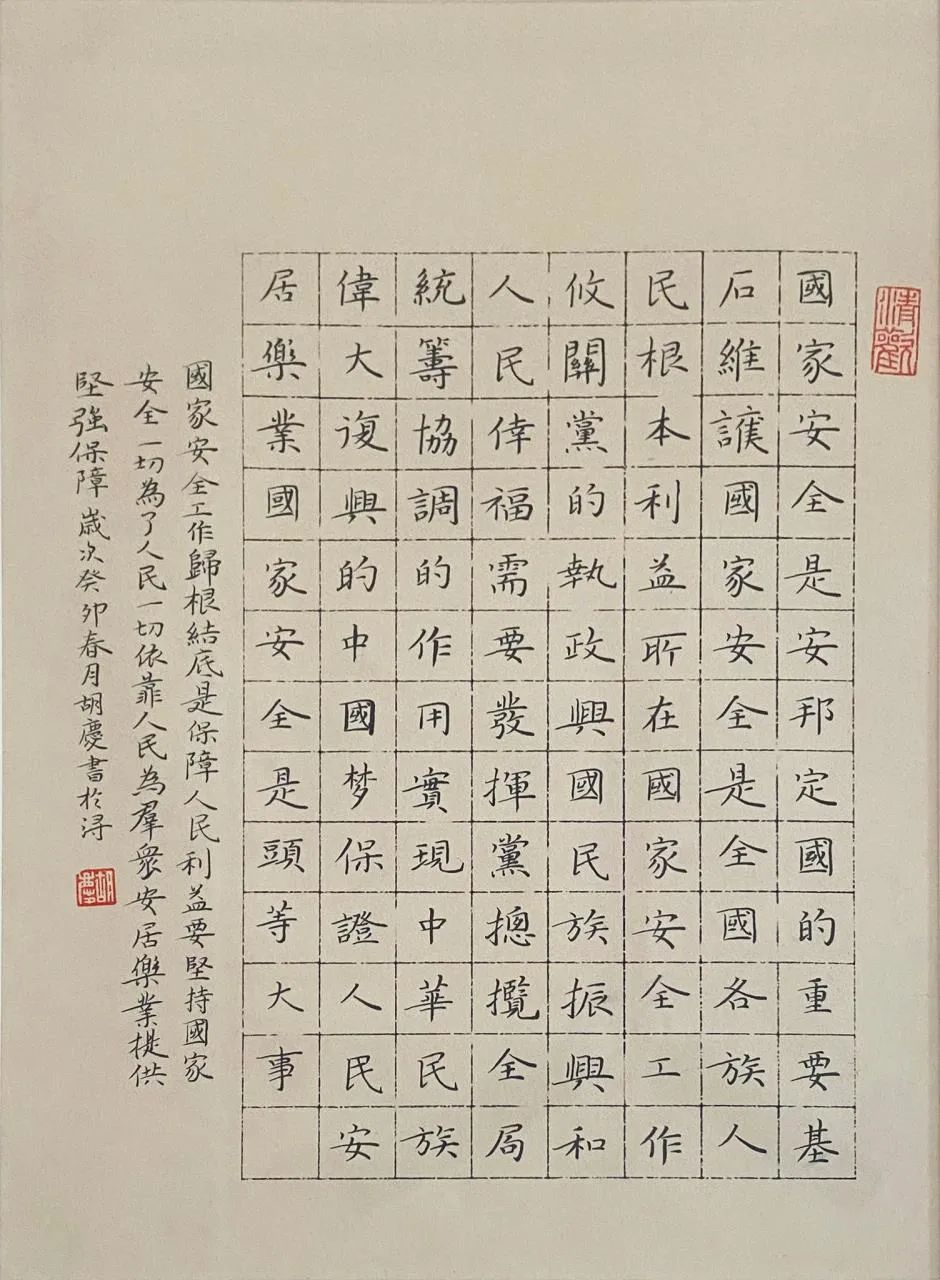 國家安全是安邦定國的重要基
石維護國家安全是全國各族人
民根本利益所在國家安全工作
攸關黨的執政興國民族振興和
人民倖福需要發揮黨摠攬全局
統籌協調的作用實現中華民族
偉大復興的中國梦保證人民安
居樂業國家安全是頭等大事
國家安全工作歸根結底是保障人民利益要堅持國家
安全一切為了人民一切依靠人民為羣衆安居樂業提供
堅強保障歲次癸卯春月胡慶書於潯
胡慶